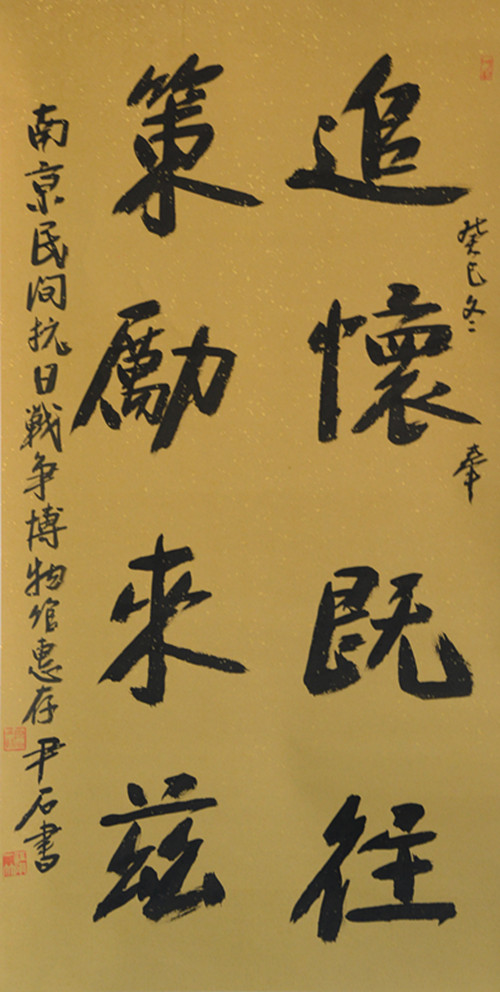 癸巳冬 奉
追懷既往
策勵來兹
南京民间抗日戰争博物馆惠存 尹石書